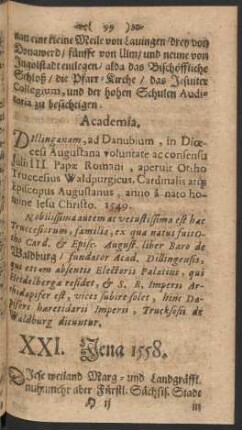 )( 99 )(
nan eine kleine Meile von Lauingen / drey von
Donawerd / fünffe von Ulm / und neune von
Ingolstadt entlegen / alda das Bischöffliche
Schloß / die Pfarr-Kirche / das Jesuiter
Collegium, und der hohen Schulen Audi-
toria zu besichtigen.
Academia.
Dillinganam, ad Danubium, in Diœ-
cesi Augustana voluntate ac consensu
Julii III Papæ Romani, aperuit Otho
Truccesius Waldpurgicus, Cardinalis atq;
Episcopus Augustanus, anno â nato ho-
mine Jesu Christo. 1549.
Nobilissima autem ac vetustissima est hæc
Truccesiorum, familia, ex qua natus fuit O-
tho Card. & Episc. August. liber Baro de
Waldburg / fundator Acad. Dillingensis,
qui etiam absentis Electoris Palatini, qui
Heidelbergæ residet, & S. R. Imperii Ar-
chidapifer est, vices subire solet, hinc Da-
pifers hæreditarii Imperii, Trucksössii de
Waldburg dicuntur.
XXI. Jena 1558.
Diese weiland Marg- und Landgräffl.
nuhnmehr aber Fürstl. Sächsis. Stadt
H ij